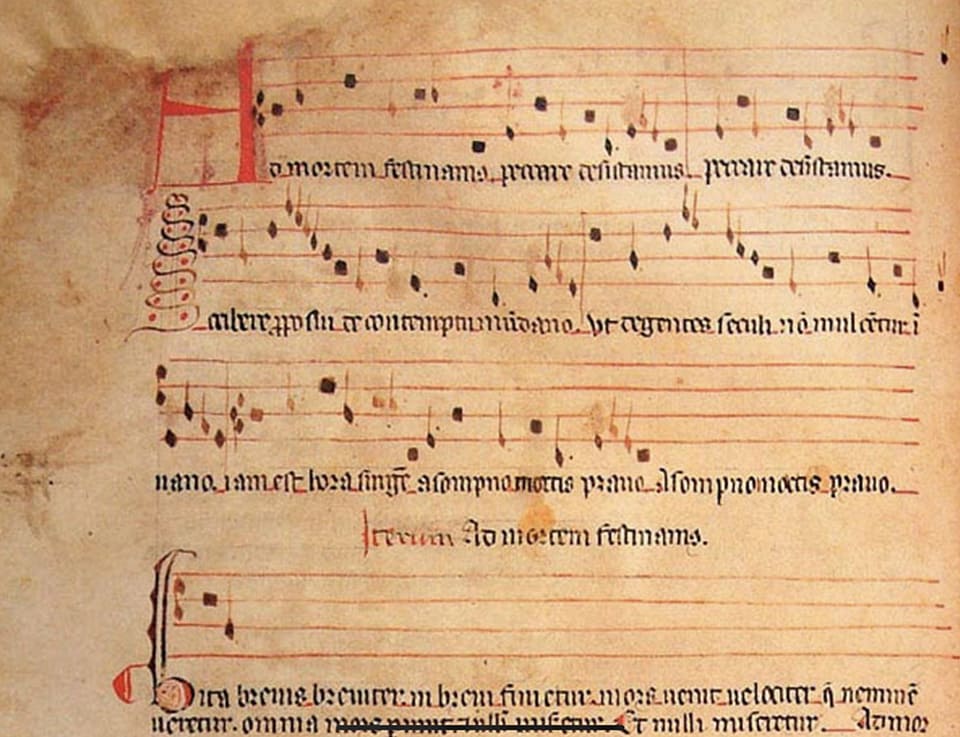 Ad mortem festinamus peccare desistamus peccare desistamus.
Scribere pposui de contemptu mūdano. Vt degentes seculi nō mulcētur ī
uano. iam est hora surgē̄ a sompno mortis prauo. A sompno mortis prauo.
Iterum Ad mortem festinamus.
Vita breuis breuiter in breui finietur. mors uenit uelociter q̄ neminē
ueretur. omnia mors et nulli miseretur. Et nulli miseretur. Ad mor